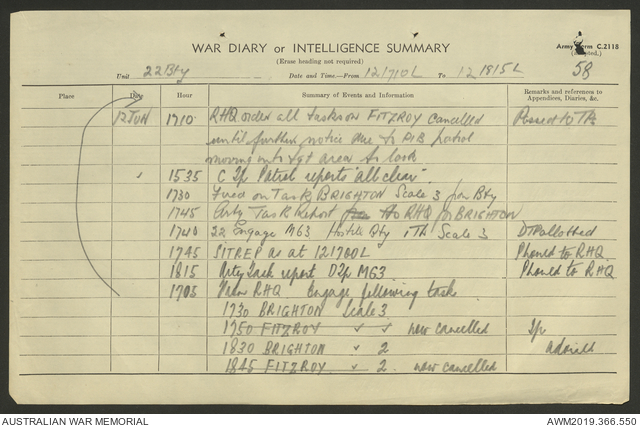 Army Form C.2118
WAR DIARY or INTELLIGENCE SUMMARY
(Erase heading not required)
58
Unit 22 Bty Date and Time—From 121710L To 121815L
Place Date Hour Summary of Events and Information Remarks and references to Appendices, Diaries, &c.
12 JUN 1710 RHQ order all tasks on FITZROY cancelled
until further notice due to patrol
moving into tgt area to look
" 1535 C Tp Patrol reports "all clear"
1730 Fired on Task BRIGHTON Scale 3 for Bty
1745 Arty Task Report to RHQ for BRIGHTON
1740 22 Engage M63 Hostile Bty Scale 3
1745 SITREP as at 121700L Phoned to RHQ.
1815 Arty Task report D Tp M63. Phoned to RHQ
1705 RHQ Engage following task
1730 BRIGHTON Scale 3
1750 FITZROY " " now cancelled
1830 BRIGHTON " 2
1845 FITZROY " 2. now cancelled
AUSTRALIAN WAR MEMORIAL AWM2019.366.550